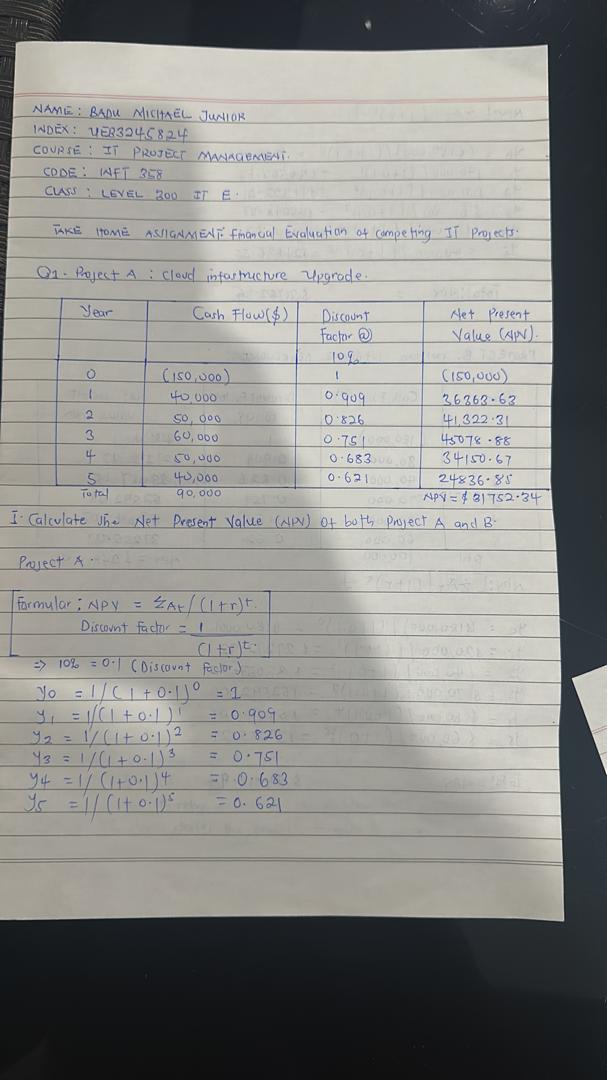 NAME: BADU MICHAEL JUNIOR
INDEX: UEB3245824
COURSE: IT PROJECT MANAGEMENT.
CODE: INFT 358
CLASS: LEVEL 300 IT E.
TAKE HOME ASSIGNMENT: Financial Evaluation of competing IT Projects.
Q1. Project A : Cloud infastructure Upgrade.
Year Cash Flow($) Discount Factor @ 10% Net Present Value (NPV).
0 (150,000) 1 (150,000)
1 40,000 0.909 36363.63
2 50,000 0.826 41,322.31
3 60,000 0.751 45078.88
4 50,000 0.683 34150.67
5 40,000 0.621 24836.85
Total 90,000 NPV = $31752.34
I. Calculate the Net Present Value (NPV) Of both Project A and B.
Project A.
Formular: NPV = ΣAt/(1+r)t.
Discount factor = 1
(1+r)t.
=> 10% = 0.1 (Discount factor)
Y0 = 1/(1+0.1)0 = 1
Y1 = 1/(1+0.1)1 = 0.909
Y2 = 1/(1+0.1)2 = 0.826
Y3 = 1/(1+0.1)3 = 0.751
Y4 = 1/(1+0.1)4 = 0.683
Y5 = 1/(1+0.1)5 = 0.621